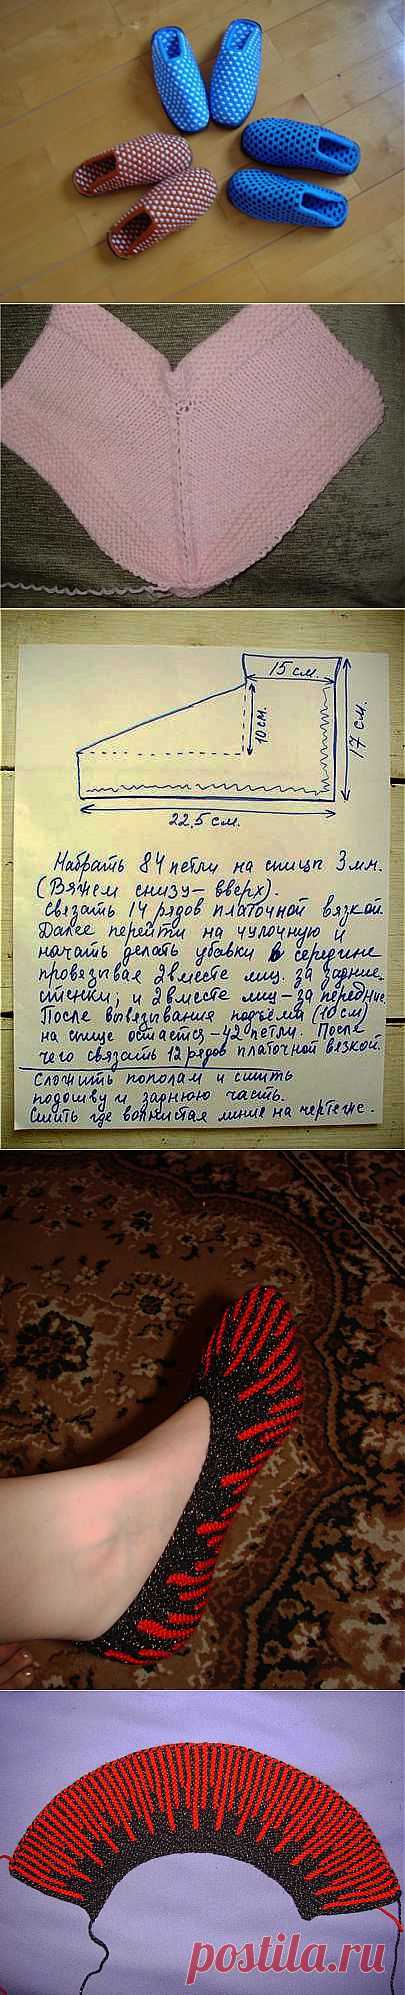 15 см.
10 см.
17 см.
22,5 см.
Набрать 84 петли на спицы 3 мм.
(Вяжем снизу-вверх).
Связать 14 рядов платочной вязкой.
Далее перейти на чулочную и
начать делать убавки в середине
провязывая 2 вместе лиц. за задние
стенки; и 2 вместе лиц - за передние.
После вывязывания подъёма (10 см)
на спице остается - 42 петли. После
чего связать 12 рядов платочной вязкой.
Сложить пополам и сшить
подошву и заднюю часть.
Сшить где волнистая линие на чертеже.
postila.ru